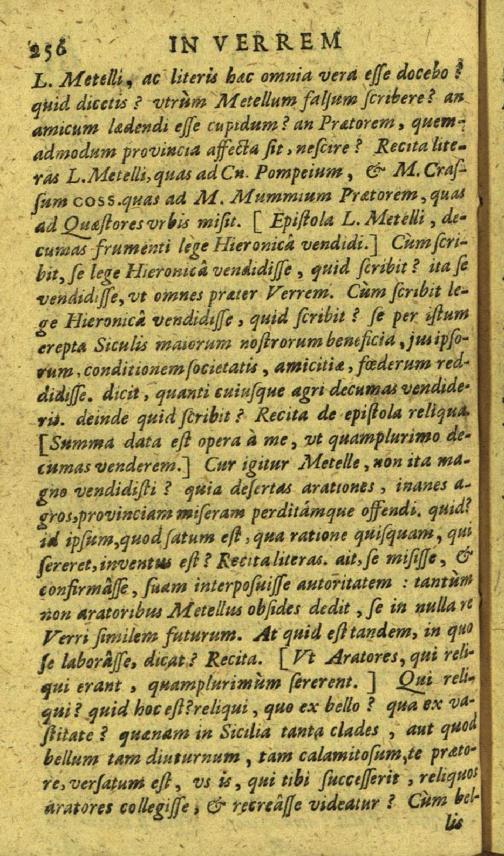 256 IN VERREM
L. Metelli, ac literis hæc omnia vera eſſe docebo?
quid dicetis? vtrùm Metellum falſum ſcribere? an
amicum lædendi eſſe cupidum? an Prætorem, quem-
admodum provincia affecta ſit, neſcire? Recita lite-
ras L. Metelli, quas ad Cn. Pompeium, & M. Craſ-
ſum COSS. quas ad M. Mummium Prætorem, quas
ad Quæſtores vrbis miſit. [Epiſtola L. Metelli, de-
cumas frumenti lege Hieronicâ vendidi.] Cùm ſcri-
bit, ſe lege Hieronicâ vendidiſſe, quid ſcribit? ita ſe
vendidiſſe, vt omnes præter Verrem. Cùm ſcribit le-
ge Hieronicâ vendidiſſe, quid ſcribit? ſe per iſtum
erepta Siculis maiorum noſtrorum beneficia, jus ipſo-
rum, conditionem ſocietatis, amicitiæ, fœderum red-
didiſſe. dicit, quanti cuiuſque agri decumas vendide-
rit. deinde quid ſcribit? Recita de epiſtola reliqua.
[Summa data eſt opera à me, vt quamplurimo de-
cumas venderem.] Cur igitur Metelle, non ita ma-
gno vendidiſti? quia deſertas arationes, inanes a-
gros, provinciam miſeram perditámque offendi. quid?
id ipſum, quod ſatum eſt, qua ratione quiſquam, qui
ſereret, inventus eſt? Recita literas. ait, ſe miſiſſe, &
confirmâſſe, ſuam interpoſuiſſe autoritatem: tantùm
non aratoribus Metellus obſides dedit, ſe in nulla re
Verri ſimilem futurum. At quid eſt tandem, in quo
ſe laborâſſe, dicat? Recita. [Vt Aratores, qui reli-
qui erant, quamplurimùm ſererent.] Qui reli-
qui? quid hoc eſt? reliqui, quo ex bello? qua ex va-
ſtitate? quænam in Sicilia tanta clades, aut quod
bellum tam diuturnum, tam calamitoſum, te præto-
re, verſatum eſt, vs is, qui tibi ſucceſſerit, reliquos
aratores collegiſſe, & recreâſſe videatur? Cùm bel-
lis